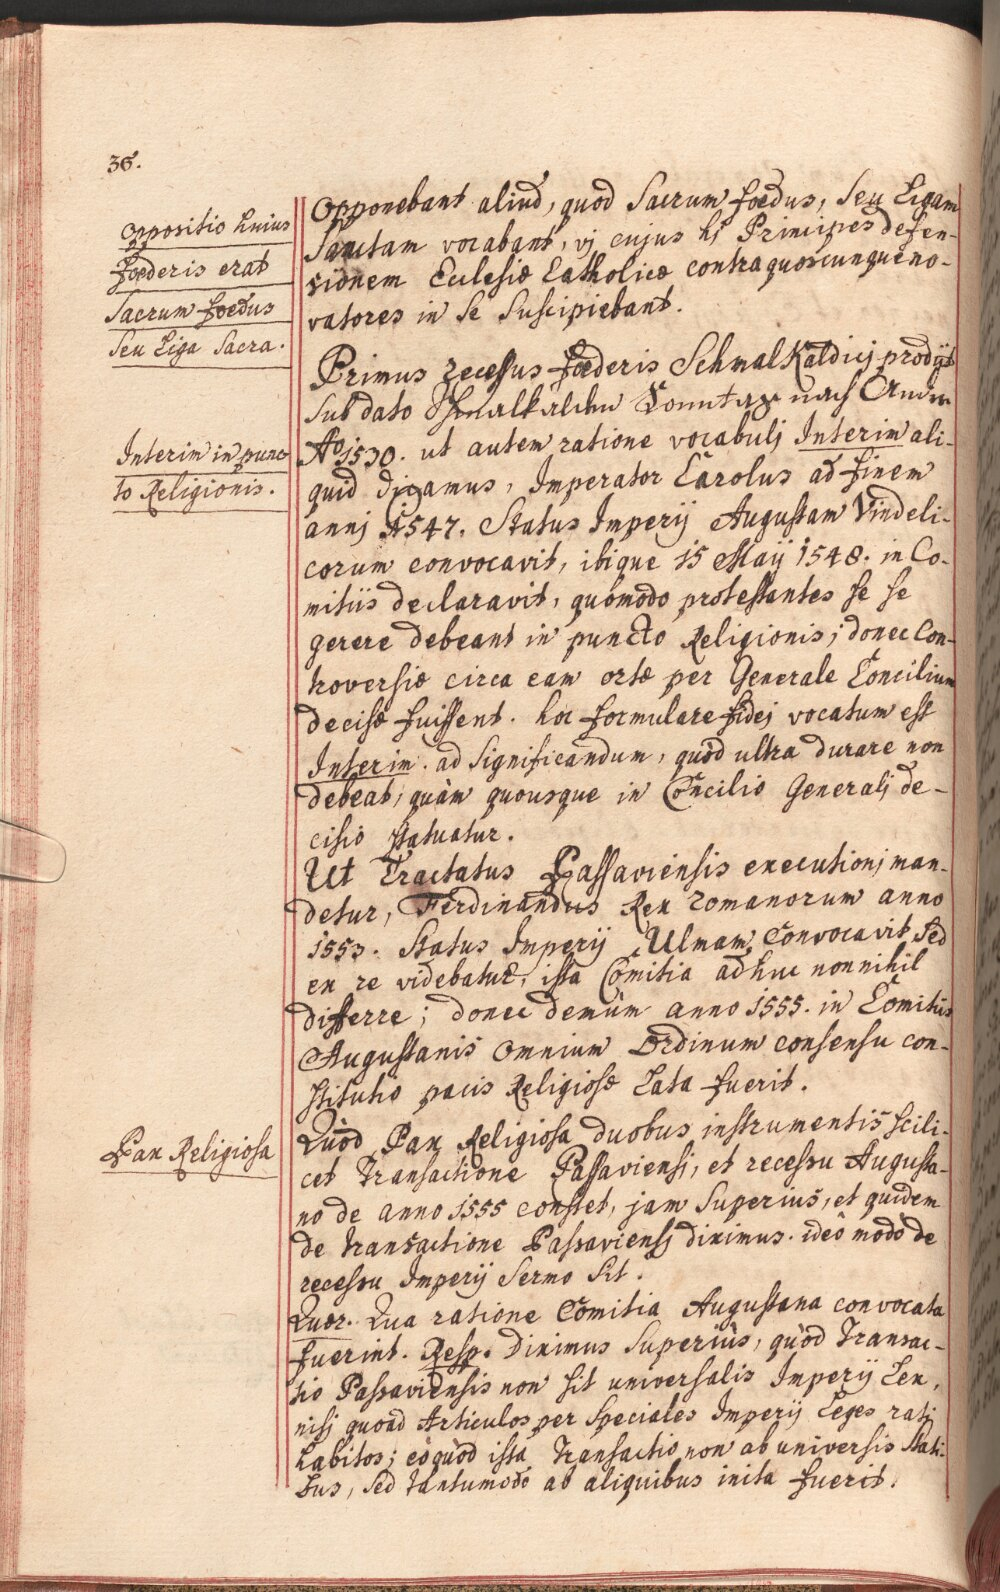 36.
oppositio huius
foederis erat
Sacrum foedus
seu Liga Sacra.
opponebant aliud, quod Sacrum foedus, seu Ligam
Sanctam vocabant, vj cujus hj Principes defen-
sionem Ecclesiæ Catholicæ contra quoscunque no-
vatores in se suscipiebant.
Primus recessus foederis SchmalKaldicj prodijt
sub dato Schmalkalden Sonntag nach
Interim in punc
to Religionis.
Ao 1530. ut autem ratione vocabulj Interim ali-
quid dicamus, Imperator Carolus ad finem
annj 1547. Status Imperij Augustam Vindeli-
corum convocavit, ibique 15 Maij 1548. in Co-
mitiis declaravit, quomodo protestantes se se
gerere debeant in puncto Religionis; donec Con-
troversiæ circa eam ortæ per Generale Concilium
decisæ fuissent. hoc formulare fidej vocatum est
Interim. ad significandum, quòd ultra durare non
debeat, quàm quousque in Concilio Generalj de-
cisio statuatur.
Ut Tractatus Passaviensis executionj man-
detur, Ferdinandus Rex romanorum anno
1553. Status Imperij Ulmam convocavit, sed
ex re videbatur, ista Comitia adhuc nonnihil
differre; donec demùm anno 1555. in Comitiis
Augustanis omnium ordinum consensu con-
stitutio pacis Religiosæ lata fuerit.
Pax Religiosa
Quòd Pax Religiosa duobus instrumentis scili-
cet Transactione Passaviensi, et recessu Augusta-
no de anno 1555 constet, jam superius, et quidem
de transactione Passaviensj diximus. ideò modò de
recessu Imperij sermo sit.
Quær. Qua ratione Comitia Augustana convocata
fuerint. Resp. diximus superiùs, quòd Transac-
tio Passaviensis non sit universalis Imperij Lex,
nisj quoad Articulos per speciales Imperij Leges ratj
habitos; eò quòd ista Transactio non ab universis stati-
bus, sed tantumodo ab aliquibus inita fuerit.